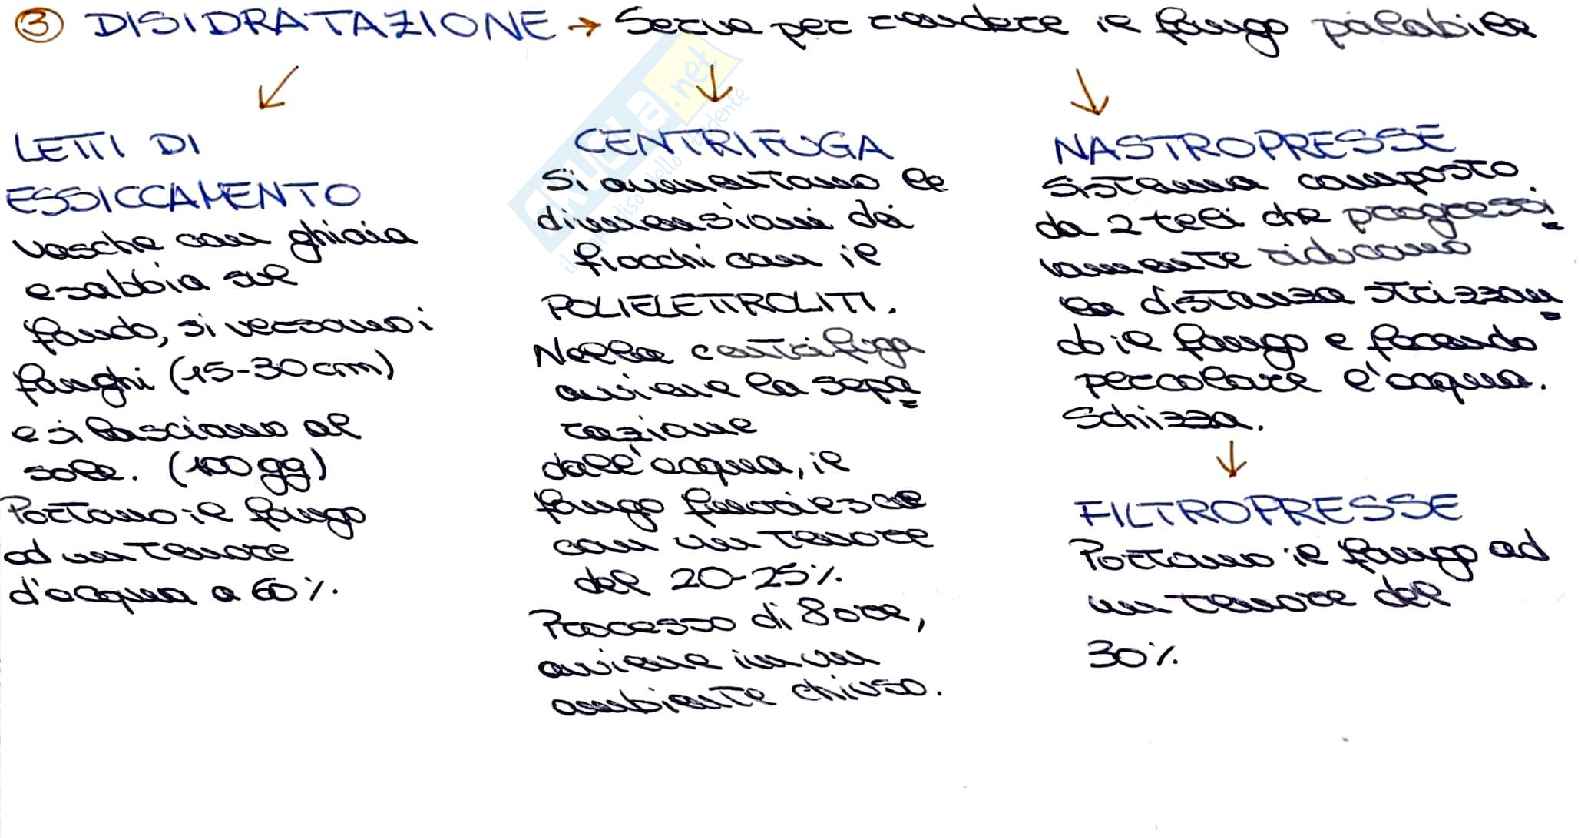 ③ DISIDRATAZIONE → Serve per rendere il fango palabile
LETTI DI
ESSICCAMENTO
vasche con ghiaia
e sabbia sul
fondo, si versano i
fanghi (15-30 cm)
e si lasciano al
sole. (100 gg)
Portano il fango
ad un tenore
d'acqua a 60%.
CENTRIFUGA
Si aumentano le
dimensioni dei
fiocchi con il
POLIELETTROLITI.
Nella centrifuga
avviene la sepa
razione
dall'acqua, il
fango fuoriesce
con un tenore
del 20-25%
Processo di 8 ore,
avviene in un
ambiente chiuso.
NASTROPRESSE
Sistema composto
da 2 teli che progressi
vamente riducono
la distanza strizzan
do il fango e facendo
percolare l'acqua.
Schizza.
FILTROPRESSE
Portano il fango ad
un tenore del
30%.